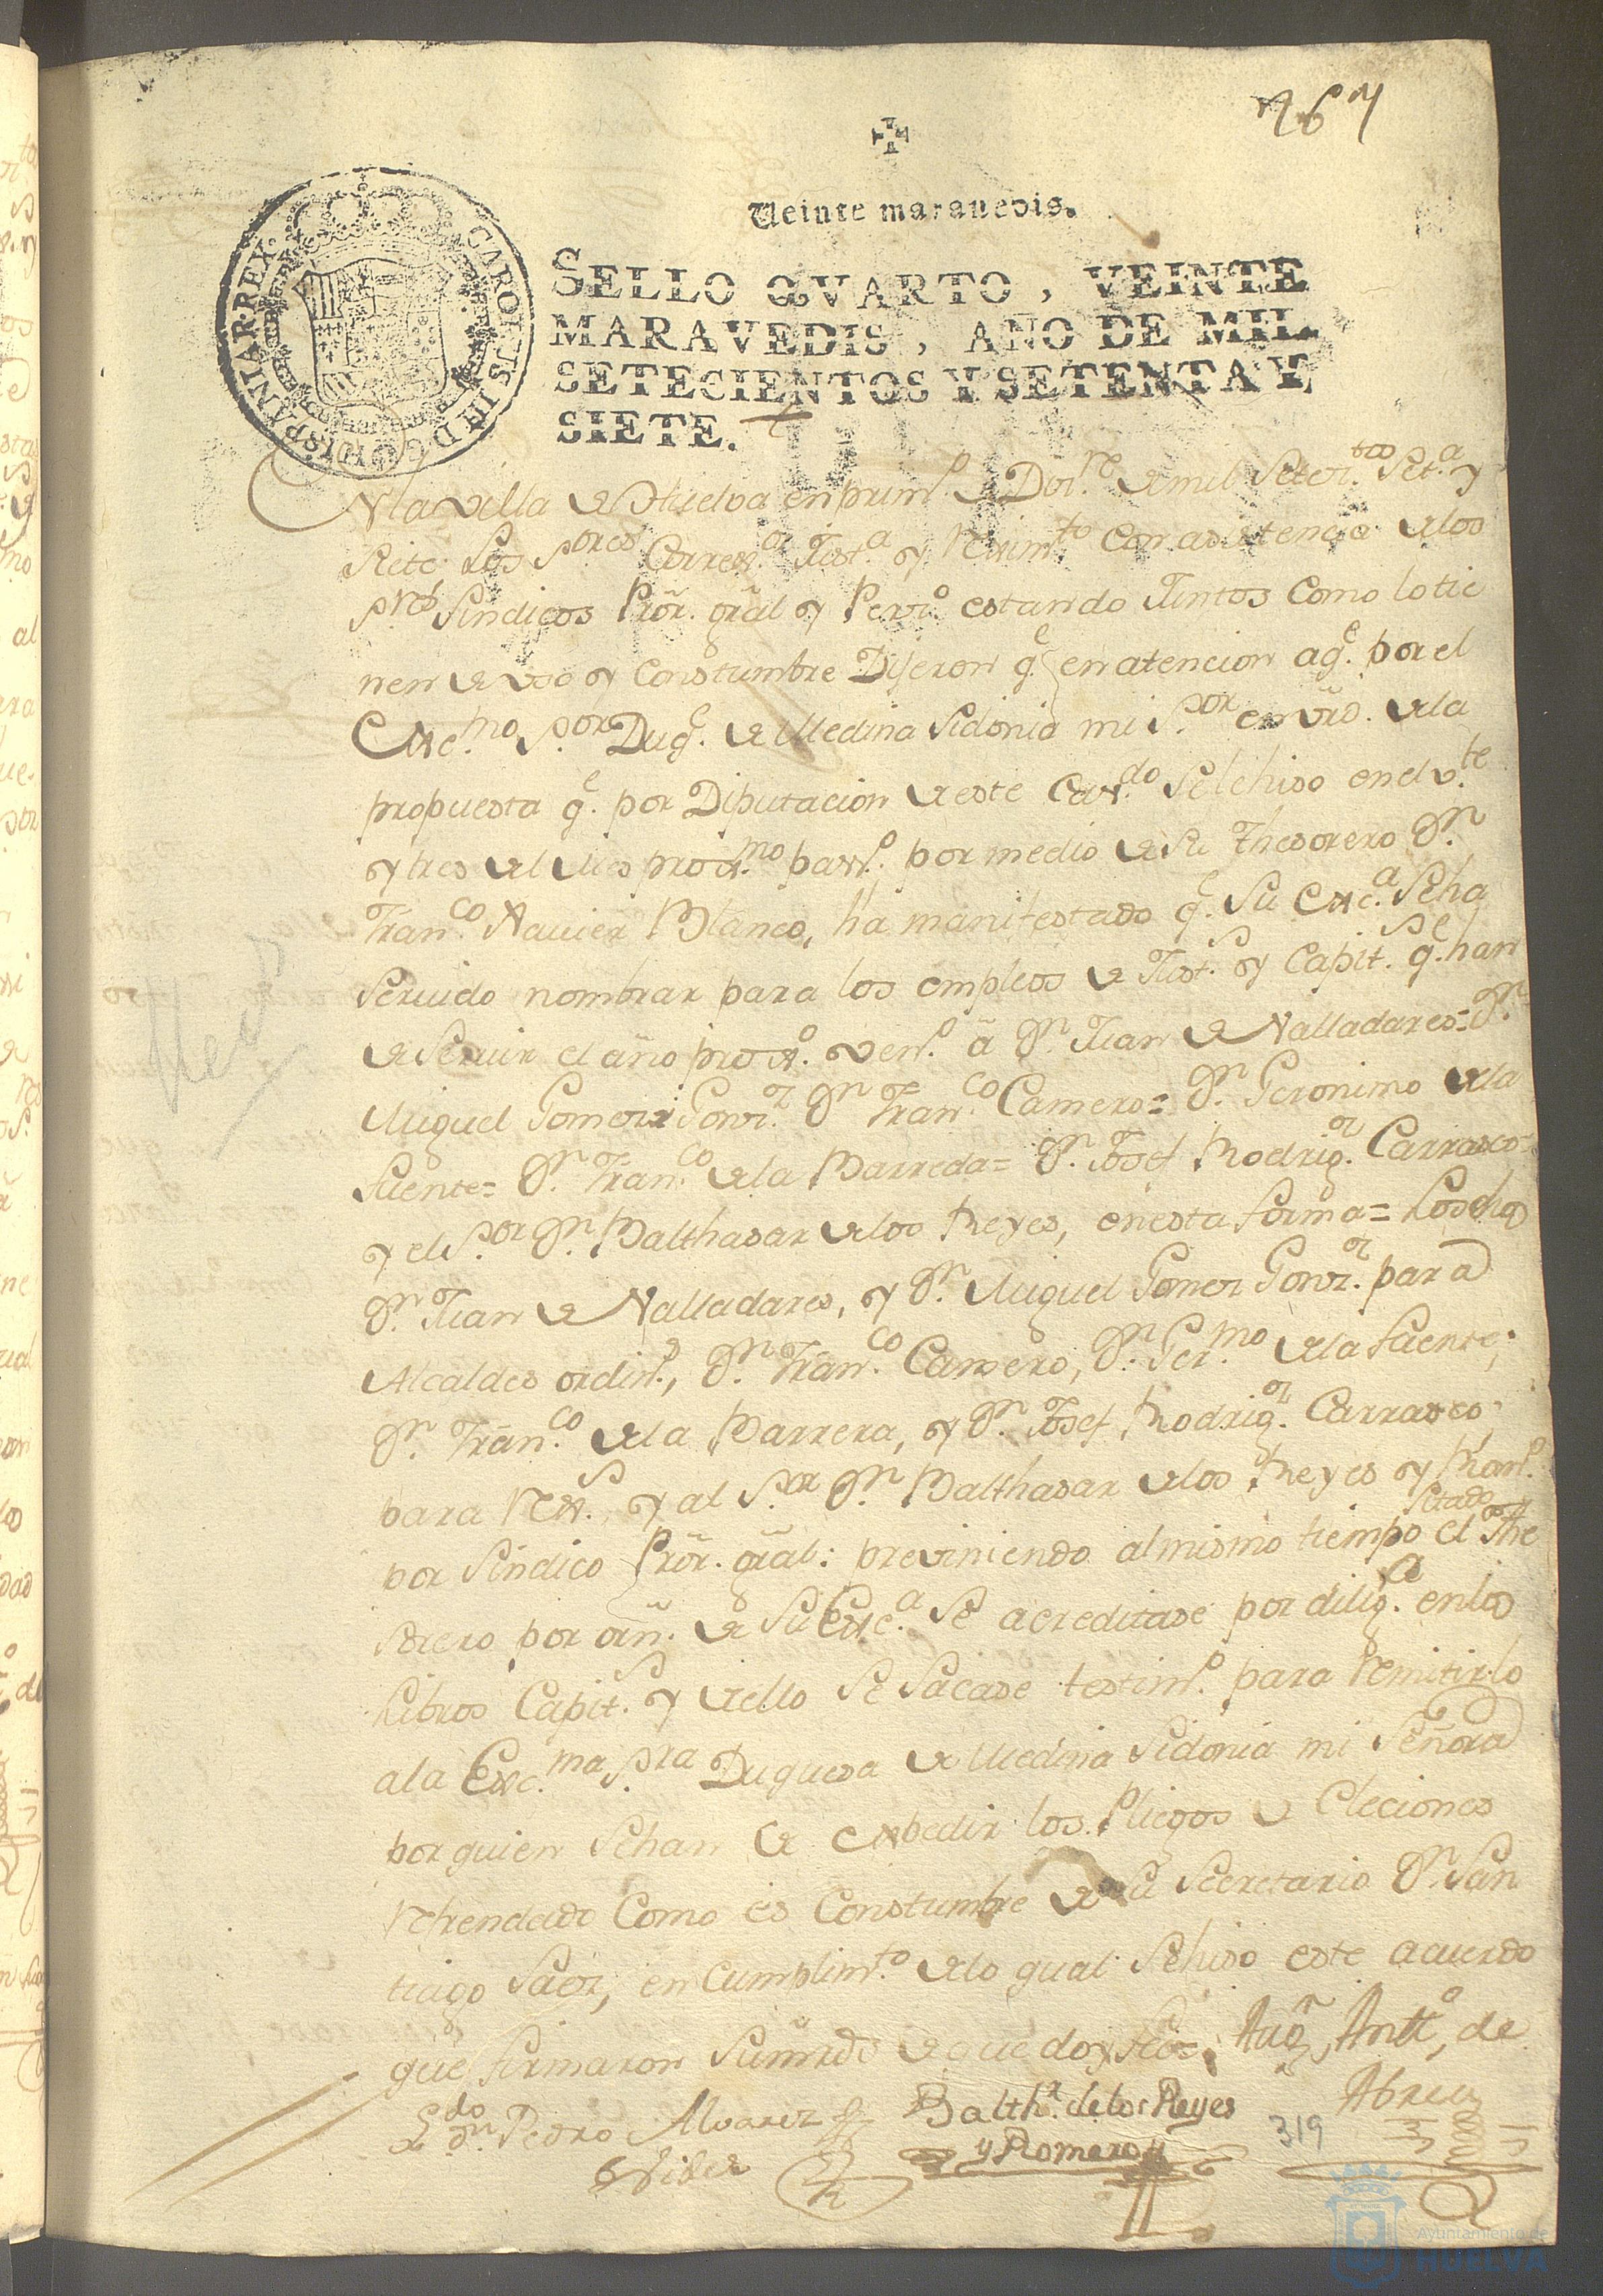 767
Veinte maravedis.
SELLO QVARTO, VEINTE
MARAVEDIS, AÑO DE MIL
SETECIENTOS Y SETENTA Y
SIETE.
CAROLUS III D G HISPANIAR REX
En la villa de Huelva en prim.º de Diz.re de mil Setez.tos Set.ta y
Siete Los S.ores Correx.or Just.a y Rexim.to Con asistencia de los
S.res Sindicos Prōr. grāl y Perso.º estando Juntos Como lo tie
nen de uso y Constumbre Dijeron q.e en atencion a q.e por el
Exc.mo S.or Duq.e de Medina Sidonia mi S.or en vrd. de la
propuesta q.e por Diputacion de este Cav.do Se le hiso en el v.te
y tres del Mes prox.mo pas.º por medio de Su Thesorero D.n
Fran.co Xavier Blanco, ha manifestado q.e Su Exc.a Se ha
Servido nombrar para los empleos de Just.s y Capit.s q.e han
de Servir el año prox.º ven.º ā D.n Juan de Valladares= D.n
Miguel Gomez Gonz.z D.n Fran.co Camero= D.n Geronimo de la
Fuente= D.n Fran.co de la Barreda= D.n Josef Rodrig.z Carrasco=
y el S.or D.n Balthasar de los Reyes, en esta forma= Los dhos
D.n Juan de Valladares, y D.n Miguel Gomez Gonz.z para
Alcaldes ordin.s, D.n Fran.co Camero, D.n Ger.mo de la Fuente,
D.n Fran.co de la Barrera, y D.n Josef Rodrig.z Carrasco,
para Rex.s, y al S.or D.n Balthasar de los Reyes y Rom.º
por Sindico Prōr. grāl: previniendo al mismo tiempo el Citado The
sorero por orñ. de Su Exc.a Se acreditase por dilig.a en los
Libros Capit.s y de ello Se Sacase testim.º para Remitirlo
a la Exc.ma S.ra Duquesa de Medina Sidonia mi Señora
por quien Se han de expedir los Pliegos de Elecciones
Refrendado Como es Constumbre de su Secretario D.n San
tiago Saez, en Cumplim.to de lo qual Se hiso este acuerdo
que firmaron Sus mrds de que doy fee=
L.do D.n Pedro Alvarez
Balth.r de los Reyes
y Romero
Aug.n Ant.º de
Abreu
319
Ayuntamiento de
HUELVA